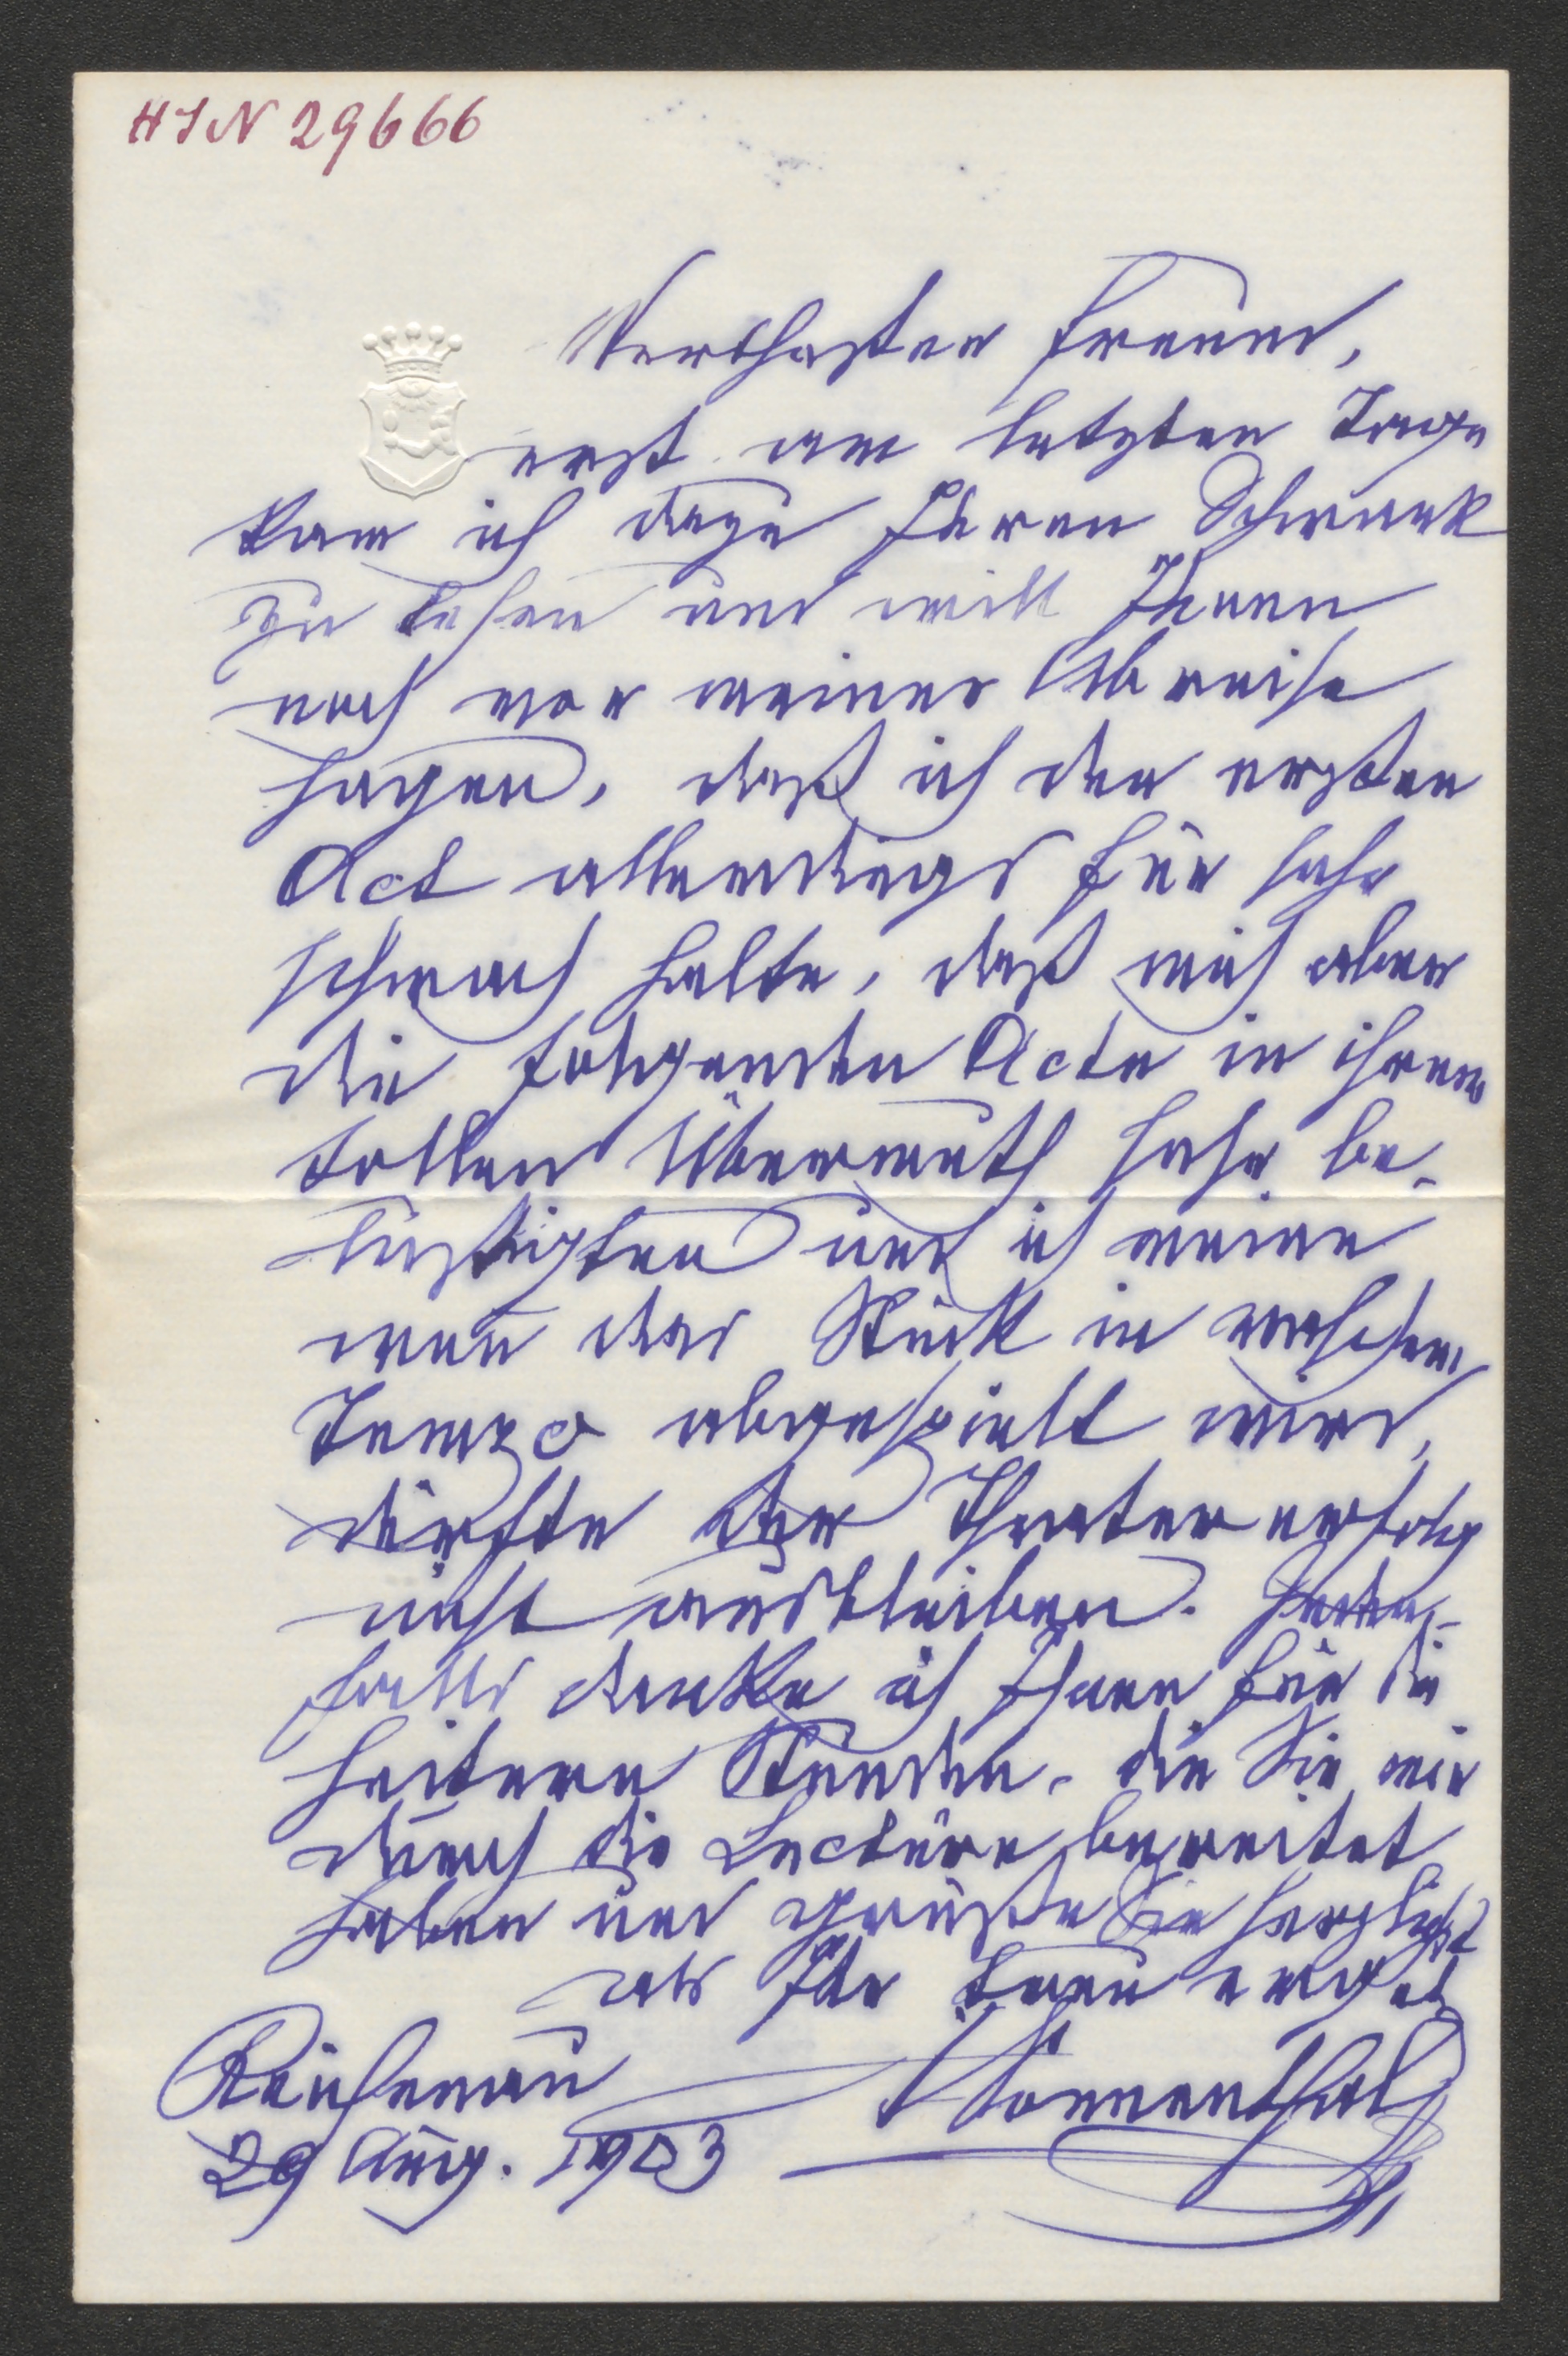 HIN 29666
Werthester Freund,
erst am letzten Tage
kam ich dazu Ihren Schwank
zu lesen und will Ihnen
noch vor meiner Abreise
sagen, daß ich den ersten
Act allerdings für sehr
schwach halte, daß mich aber
die folgenden Acte in ihrem
tollen Übermuth sehr be-
lustigten und ich meine
wenn das Stück in raschem
Tempo abgespielt wird,
dürfte der Theatererfolg
nicht ausbleiben. Jeden-
falls danke ich Ihnen für die
heitern Stunden, die Sie mir
durch die Lectüre bereitet
haben und grüße Sie herzlichst
als Ihr treu ergeb.
Reichenau Sonnenthal
29 Aug. 1903